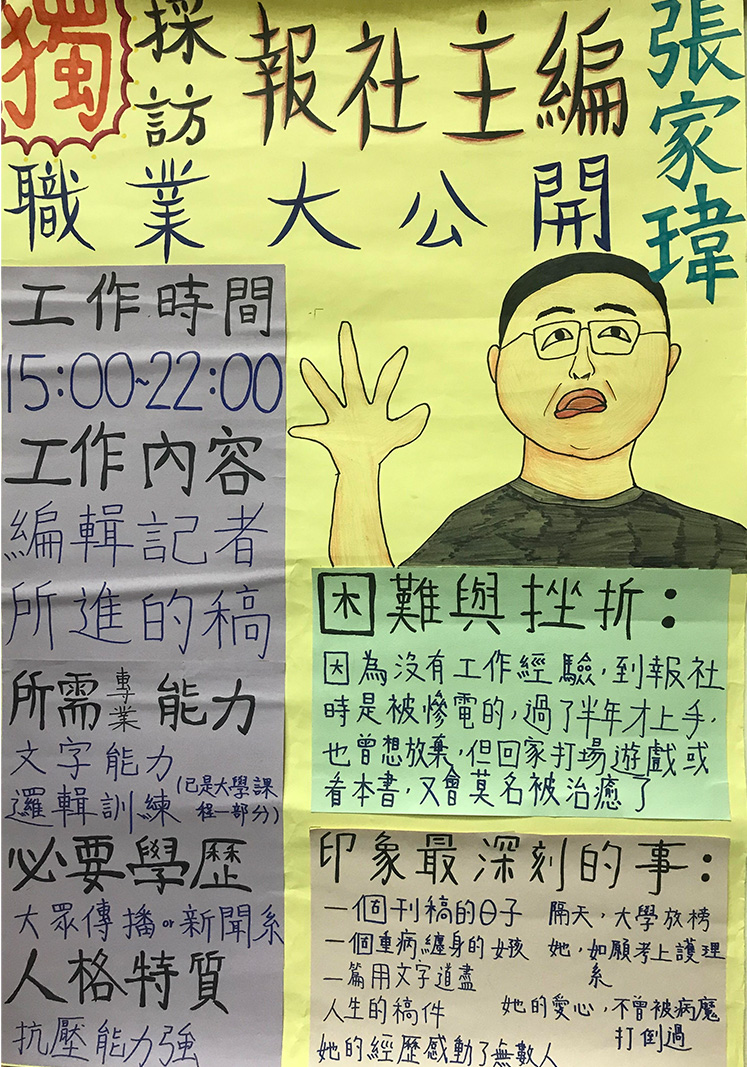 獨
採訪
報社主編
張家瑋
職業大公開
工作時間
15:00~22:00
工作內容
編輯記者
所進的稿
所需專業能力
文字能力
邏輯訓練(已是大學課
程一部分)
必要學歷
大眾傳播or新聞系
人格特質
抗壓能力強
困難與挫折：
因為沒有工作經驗,到報社
時是被慘電的,過了半年才上手,
也曾想放棄,但回家打場遊戲或
看本書,又會莫名被治癒了
印象最深刻的事：
一個刊稿的日子
一個重病纏身的女孩
一篇用文字道盡
人生的稿件
她的經歷感動了無數人
隔天,大學放榜
她,如願考上護理
系
她的愛心,不曾被病魔
打倒過